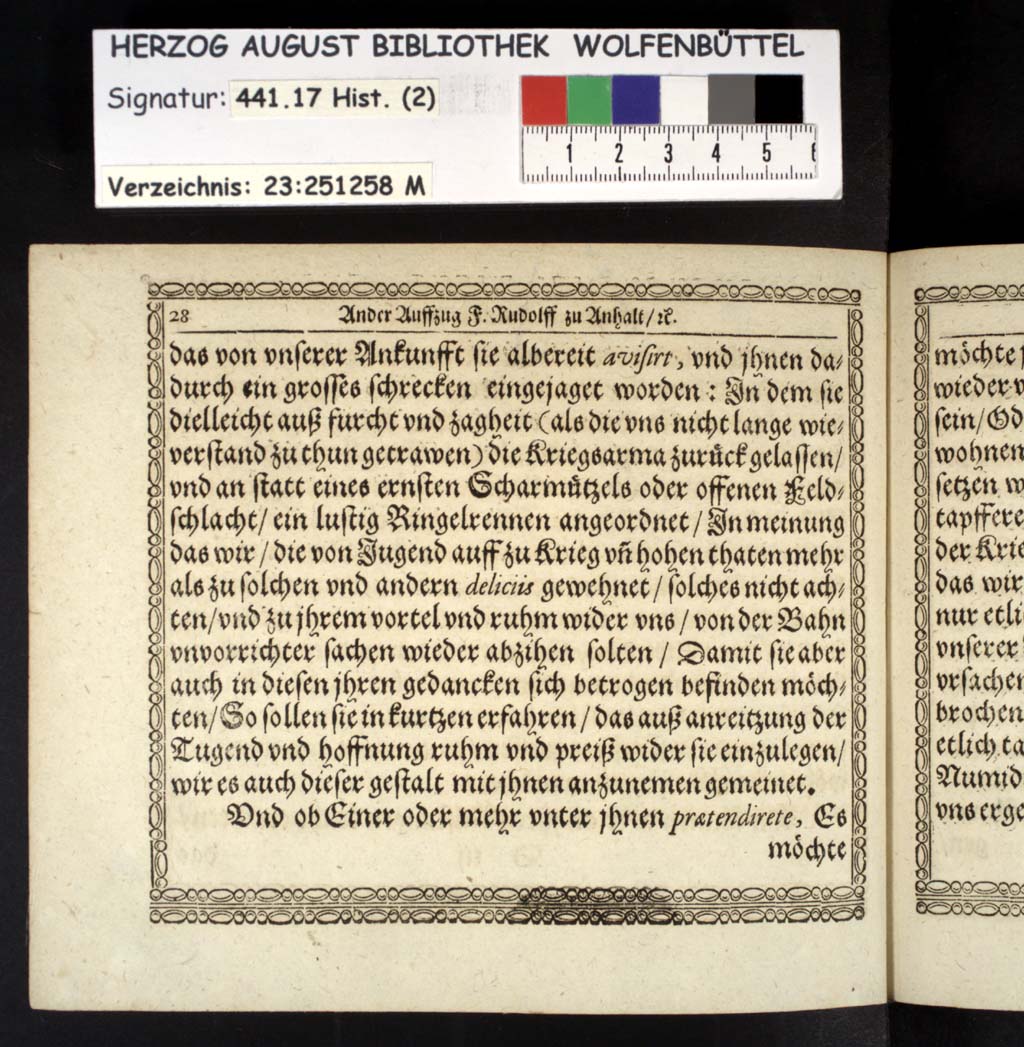 HERZOG AUGUST BIBLIOTHEK WOLFENBÜTTEL
Signatur: 441.17 Hist. (2)
Verzeichnis: 23:251258 M
1 2 3 4 5
28 Ander Auffzug F. Rudolff zu Anhalt/ ꝛc.
das von vnserer Ankunfft sie albereit avisirt, vnd jhnen da-
durch ein grosses schrecken eingejaget worden: In dem sie
dielleicht auß furcht vnd zagheit (als die vns nicht lange wie-
verstand zu thun getrawen) die Kriegsarma zurück gelassen/
vnd an statt eines ernsten Scharmützels oder offenen Feld-
schlacht/ ein lustig Ringelrennen angeordnet/ In meinung
das wir/ die von Jugend auff zu Krieg vn̄ hohen thaten mehr
als zu solchen vnd andern deliciis gewehnet/ solches nicht ach-
ten/ vnd zu jhrem vortel vnd ruhm wider vns/ von der Bahn
vnvorrichter sachen wieder abzihen solten/ Damit sie aber
auch in diesen jhren gedancken sich betrogen befinden möch-
ten/ So sollen sie in kurtzen erfahren/ das auß anreitzung der
Tugend vnd hoffnung ruhm vnd preiß wider sie einzulegen/
wir es auch dieser gestalt mit jhnen anzunemen gemeinet.
Vnd ob Einer oder mehr vnter jhnen prætendirete, Es
möchte
möchte
wieder
sein/
wohnen
setzen
tapffere
der
das wir
nur
vnserer
vrsachen
brochen
etlich
Numid
vns